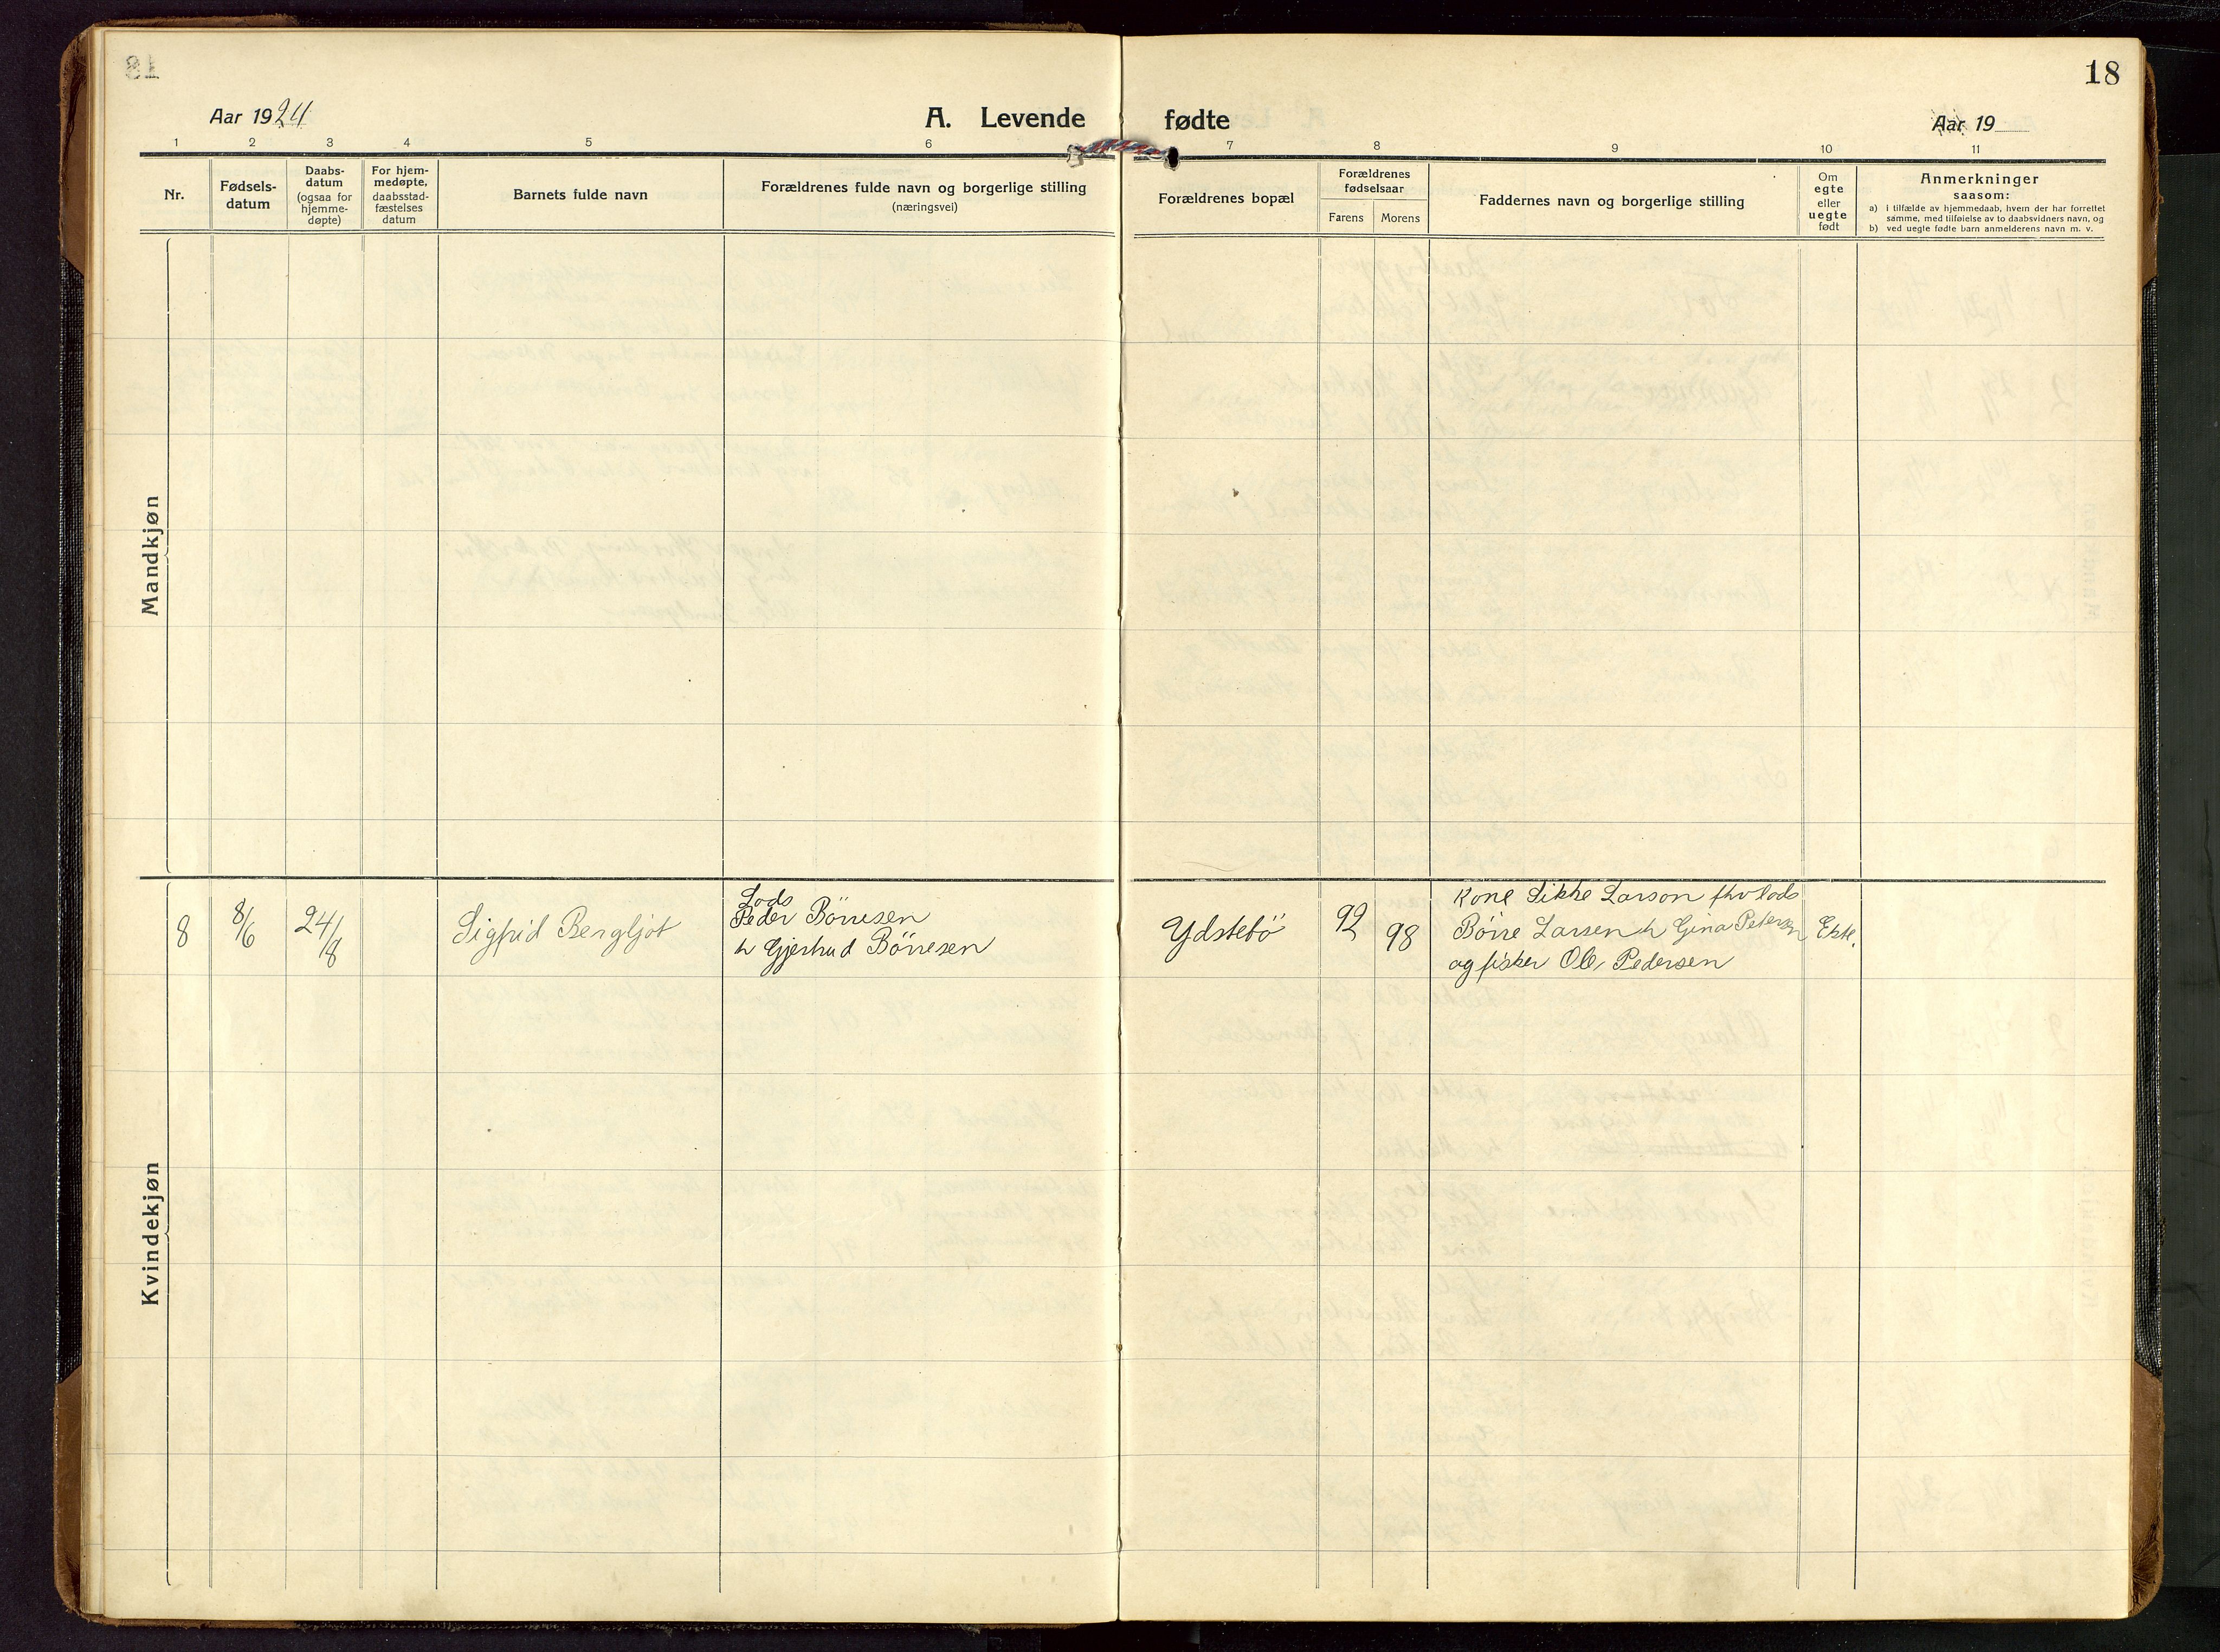 18
Aar 1924
A. Levende fødte
Aar 19
1 2 3 4 5 6 7 8 9 10 11
Nr.
Fødsels-
datum
Daabs-
datum
(ogsaa for
hjemme-
døpte)
For hjem-
medøpte,
daabsstad-
fæstelses
datum
Barnets fulde navn
Forældrenes fulde navn og borgerlige stilling
(næringsvei)
Forældrenes bopæl
Forældrenes
fødselsaar
Farens Morens
Faddernes navn og borgerlige stilling
Om
egte
eller
uegte
født
Anmerkninger
saasom:
a) i tilfælde av hjemmedaab, hvem der har forrettet
samme, med tilføielse av to daabsvidners navn, og
b) ved uegte fødte barn anmelderens navn m. v.
Mandkjøn
Kvindekjøn
8
8/6
24/8
Sigfrid Bergljot
Lods
Peder Börresen
h Gjertrud Börresen
Ydstebö
92
98
Kone Sikke Larson fhv lods
Börre Larsen h Gina Petersen
og fisker Ole Pedersen
Ekte.